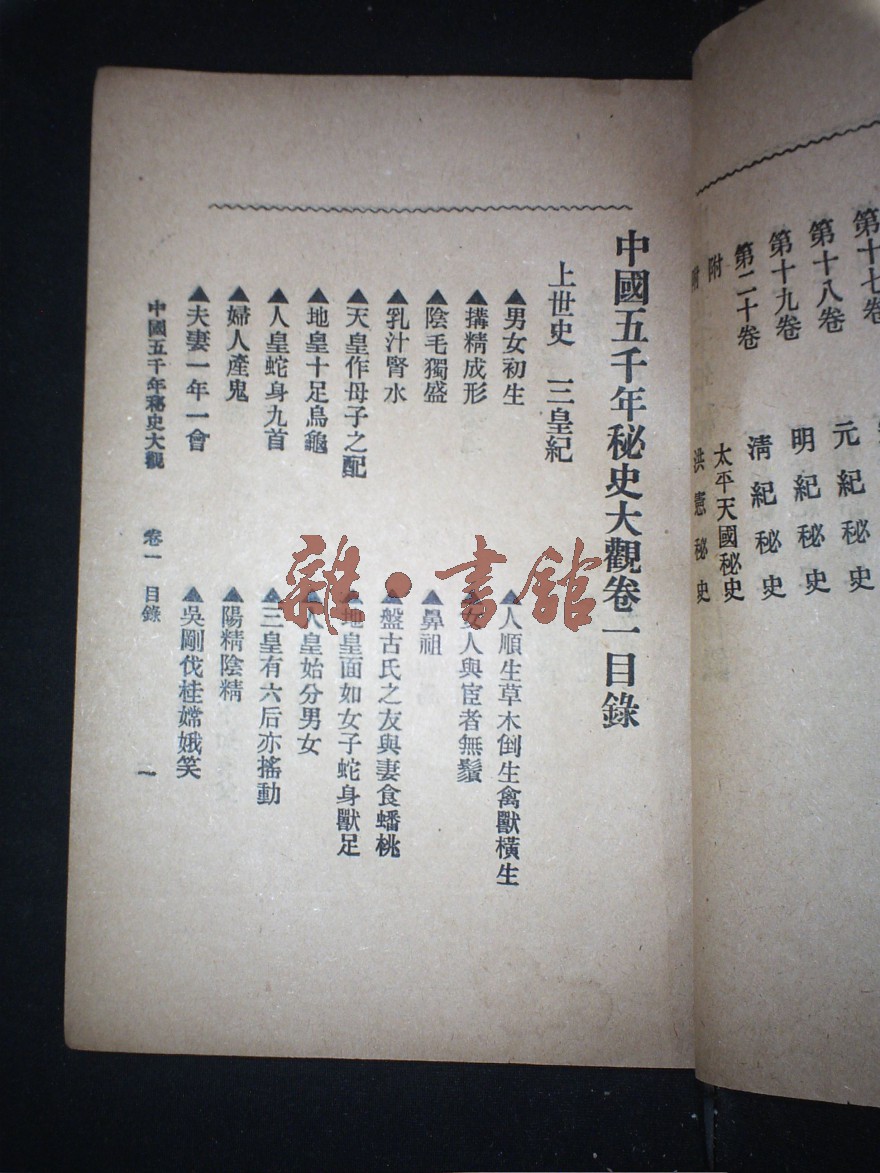 第十七卷
第十八卷 元紀秘史
第十九卷 明紀秘史
第二十卷 清紀秘史
附 太平天國秘史
附 洪憲秘史
中國五千年秘史大觀卷一目錄
上世史 三皇紀
▲男女初生 ▲人順生草木倒生禽獸橫生
▲搆精成形 ▲女人與宦者無鬚
▲陰毛獨盛 ▲鼻祖
▲乳汁腎水 ▲盤古氏之友與妻食蟠桃
▲天皇作母子之配 ▲地皇面如女子蛇身獸足
▲地皇十足鳥龜 ▲人皇始分男女
▲人皇蛇身九首 ▲三皇有六后亦搖動
▲婦人產鬼 ▲陽精陰精
▲夫妻一年一會 ▲吳剛伐桂嫦娥笑
中國五千年秘史大觀 卷一 目錄 一
雜·書館